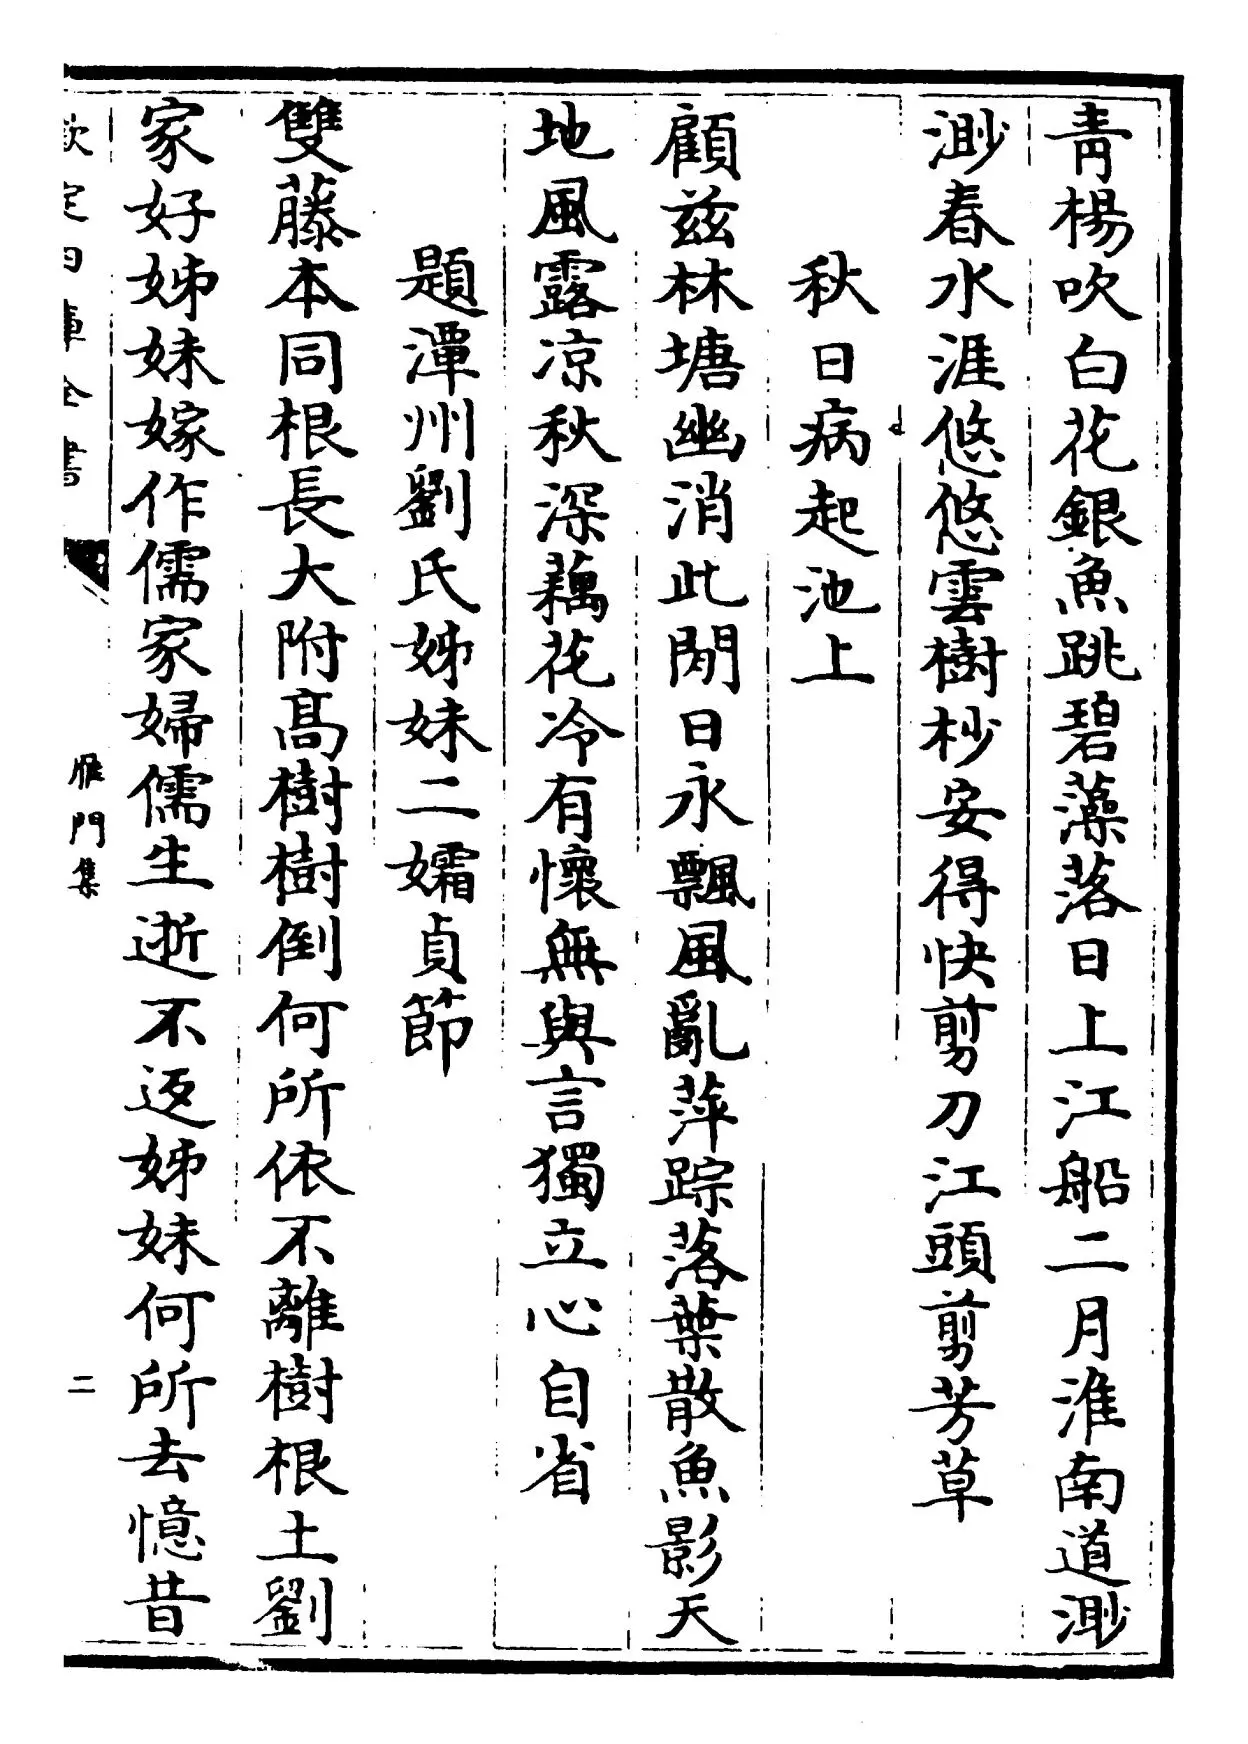 青楊吹白花銀魚跳碧藻落日上江船二月淮南道渺
渺春水涯悠悠雲樹杪安得快剪刀江頭剪芳草
秋日病起池上
顧茲林塘幽消此閒日永飄風亂萍踪落葉散魚影天
地風露凉秋深藕花冷有懷無與言獨立心自省
題潭州劉氏姊妹二孀貞節
雙藤本同根長大附高樹樹倒何所依不離樹根土劉
家好姊妹嫁作儒家婦儒生逝不返姊妹何所去憶昔
欽定四庫全書
雁門集
二